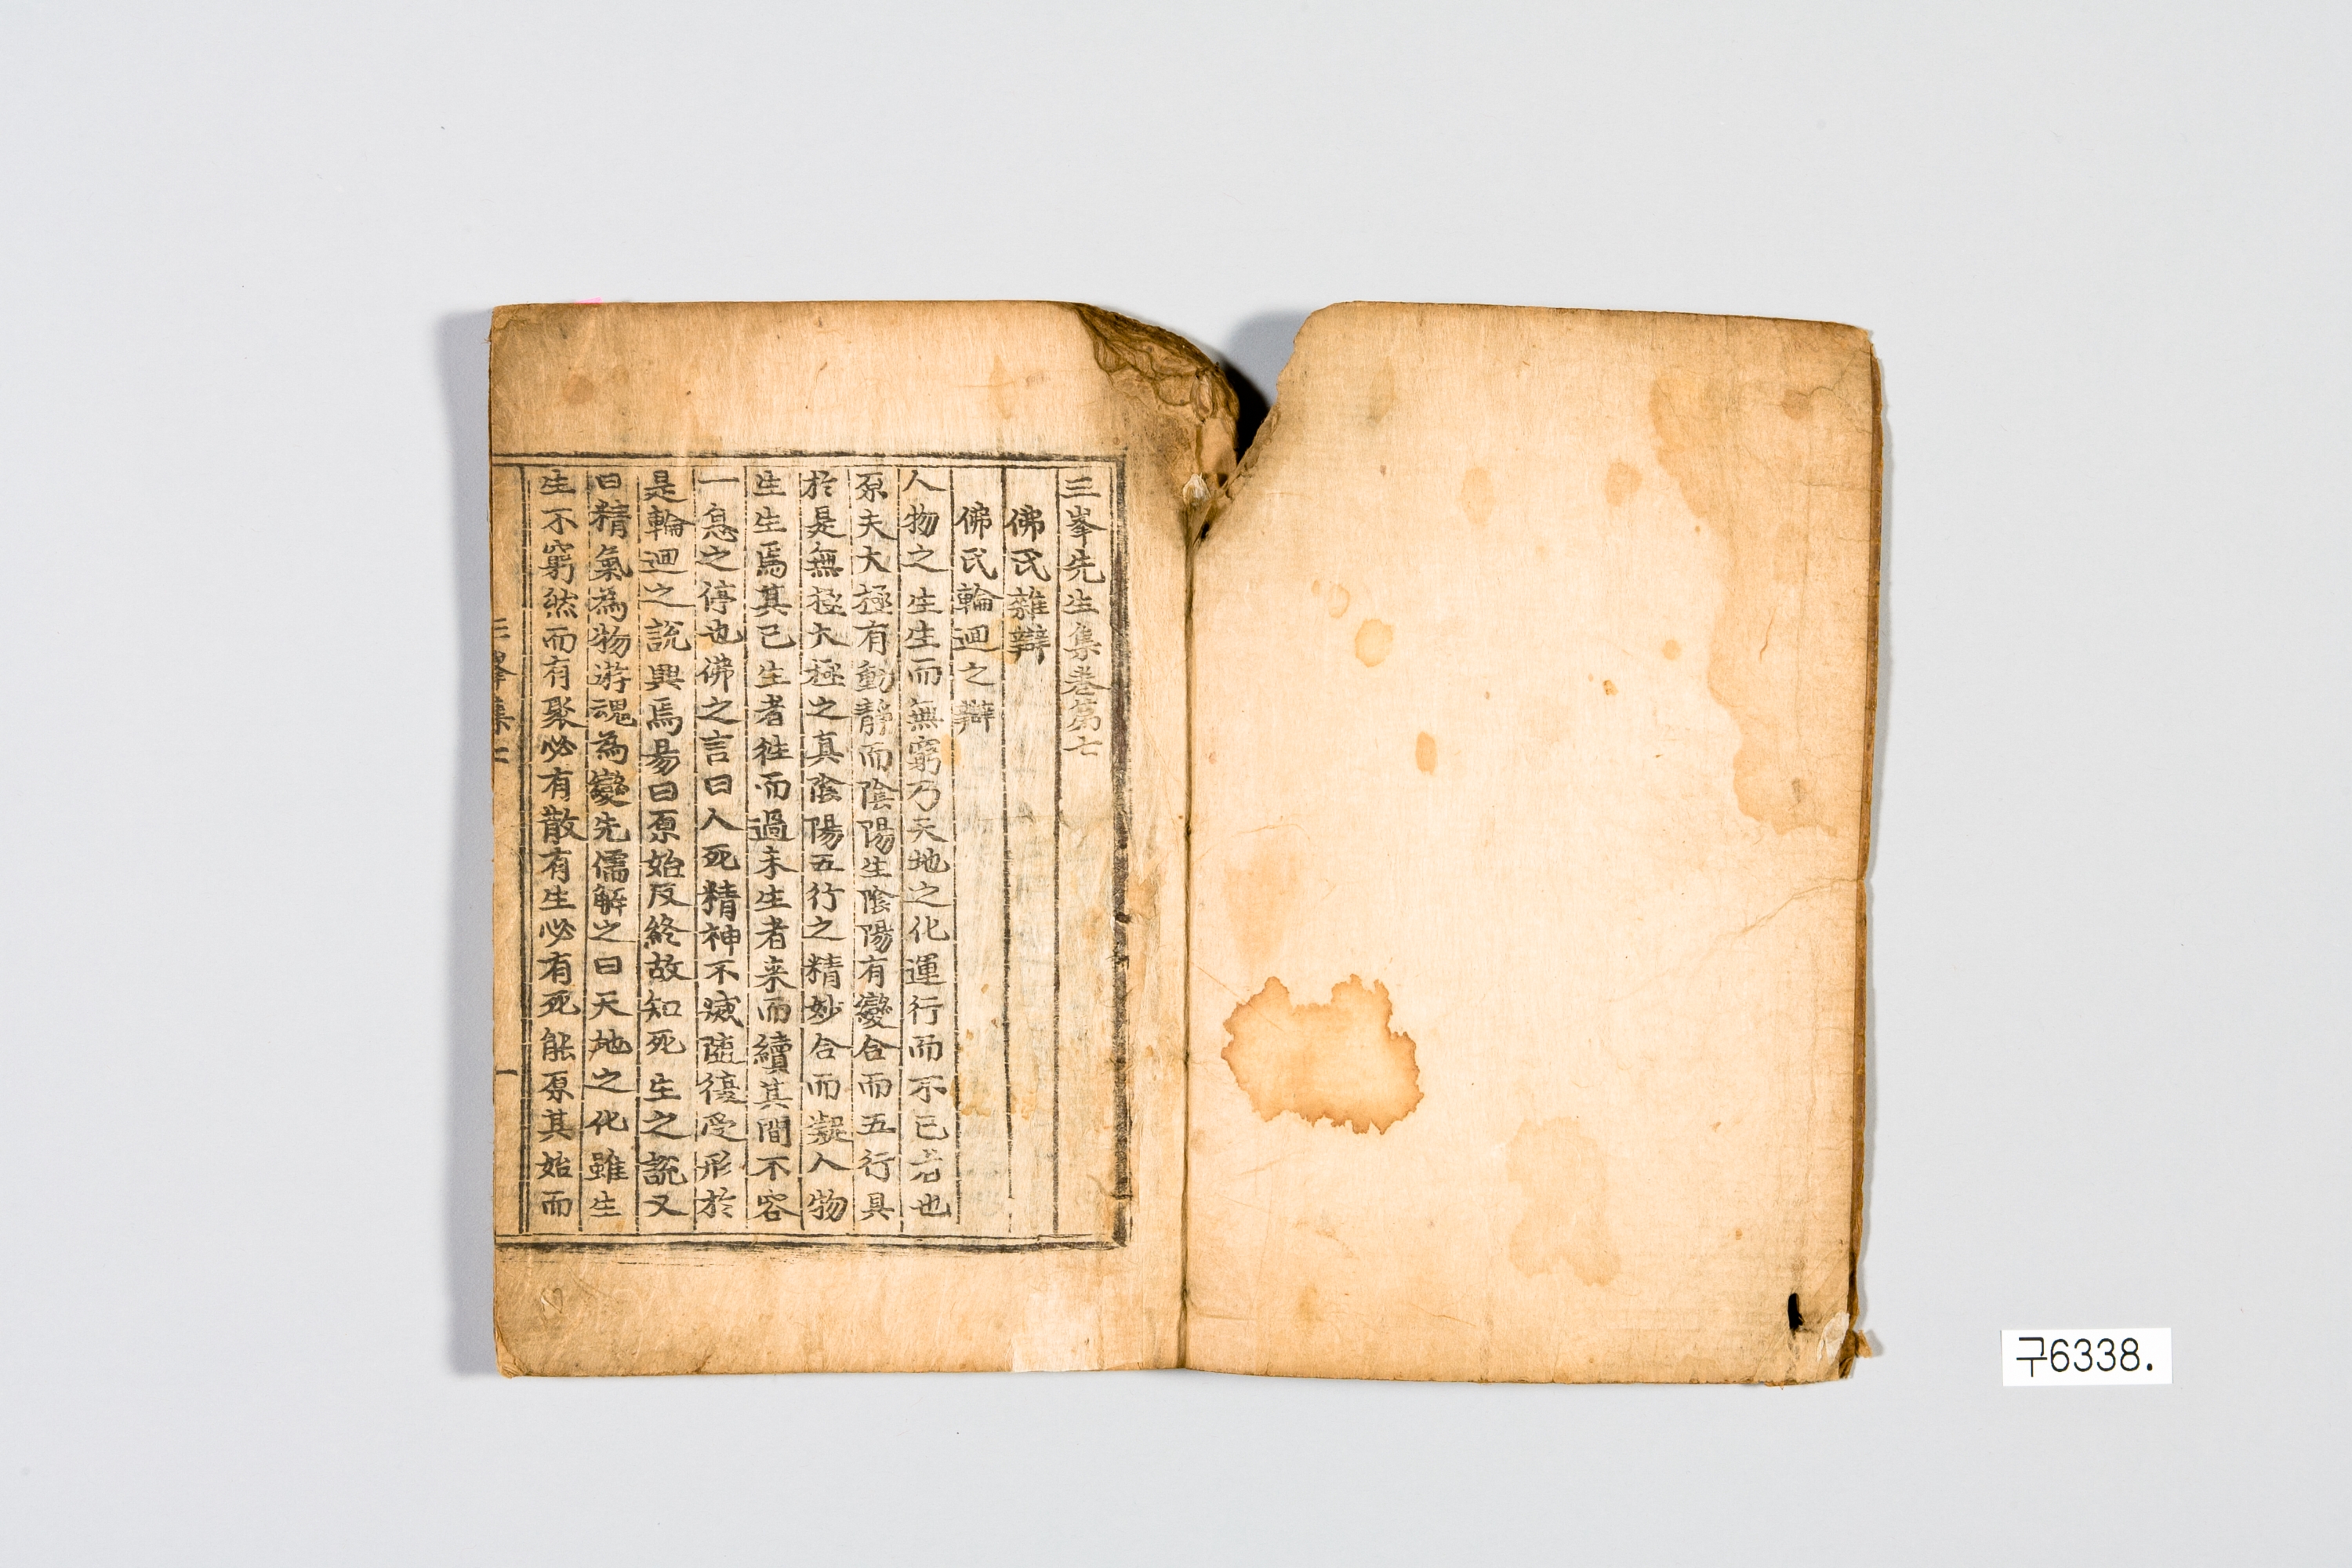 三峯先生集卷第七
佛氏雜辯
佛氏輪廻之辯
人物之生生而無窮乃天地之化運行而不已者也
原夫大極有動靜而陰陽生陰陽有變合而五行具
於是無極大極之真陰陽五行之精妙合而凝人物
生生焉其已生者徃而過未生者来而續其間不容
一息之停也佛之言曰人死精神不滅隨復受形於
是輪廻之說興焉易曰原始反終故知死生之說又
曰精氣為物游魂為變先儒解之曰天地之化雖生
生不窮然而有聚必有散有生必有死能原其始而
三峯集七
一
구6338.